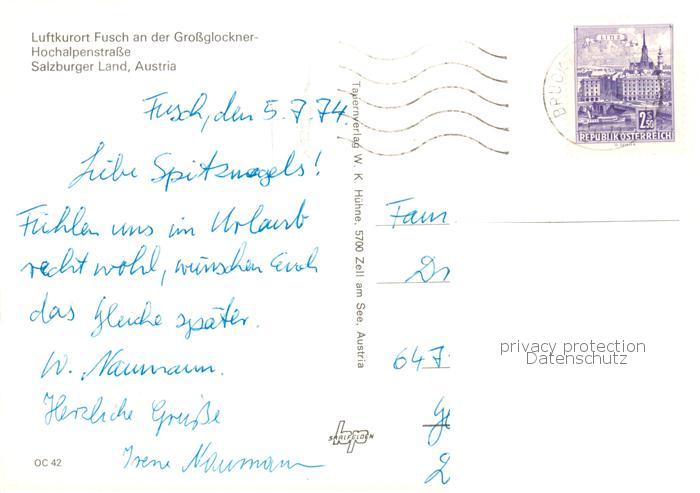 Luftkurort Fusch an der Großglockner-
Hochalpenstraße
Salzburger Land, Austria
Fusch, den 5.7.74.
Liebe Spitznagels!
Fühlen uns im Urlaub
recht wohl, wünschen Euch
das Gleiche später.
W. Naumann.
Herzliche Grüße
Irene Naumann
OC 42
Tauernverlag W. K. Hühne, 5700 Zell am See, Austria
SAALFELDEN
LINZ
BRUCK
2.50
REPUBLIK ÖSTERREICH
Fam
647
privacy protection
Datenschutz